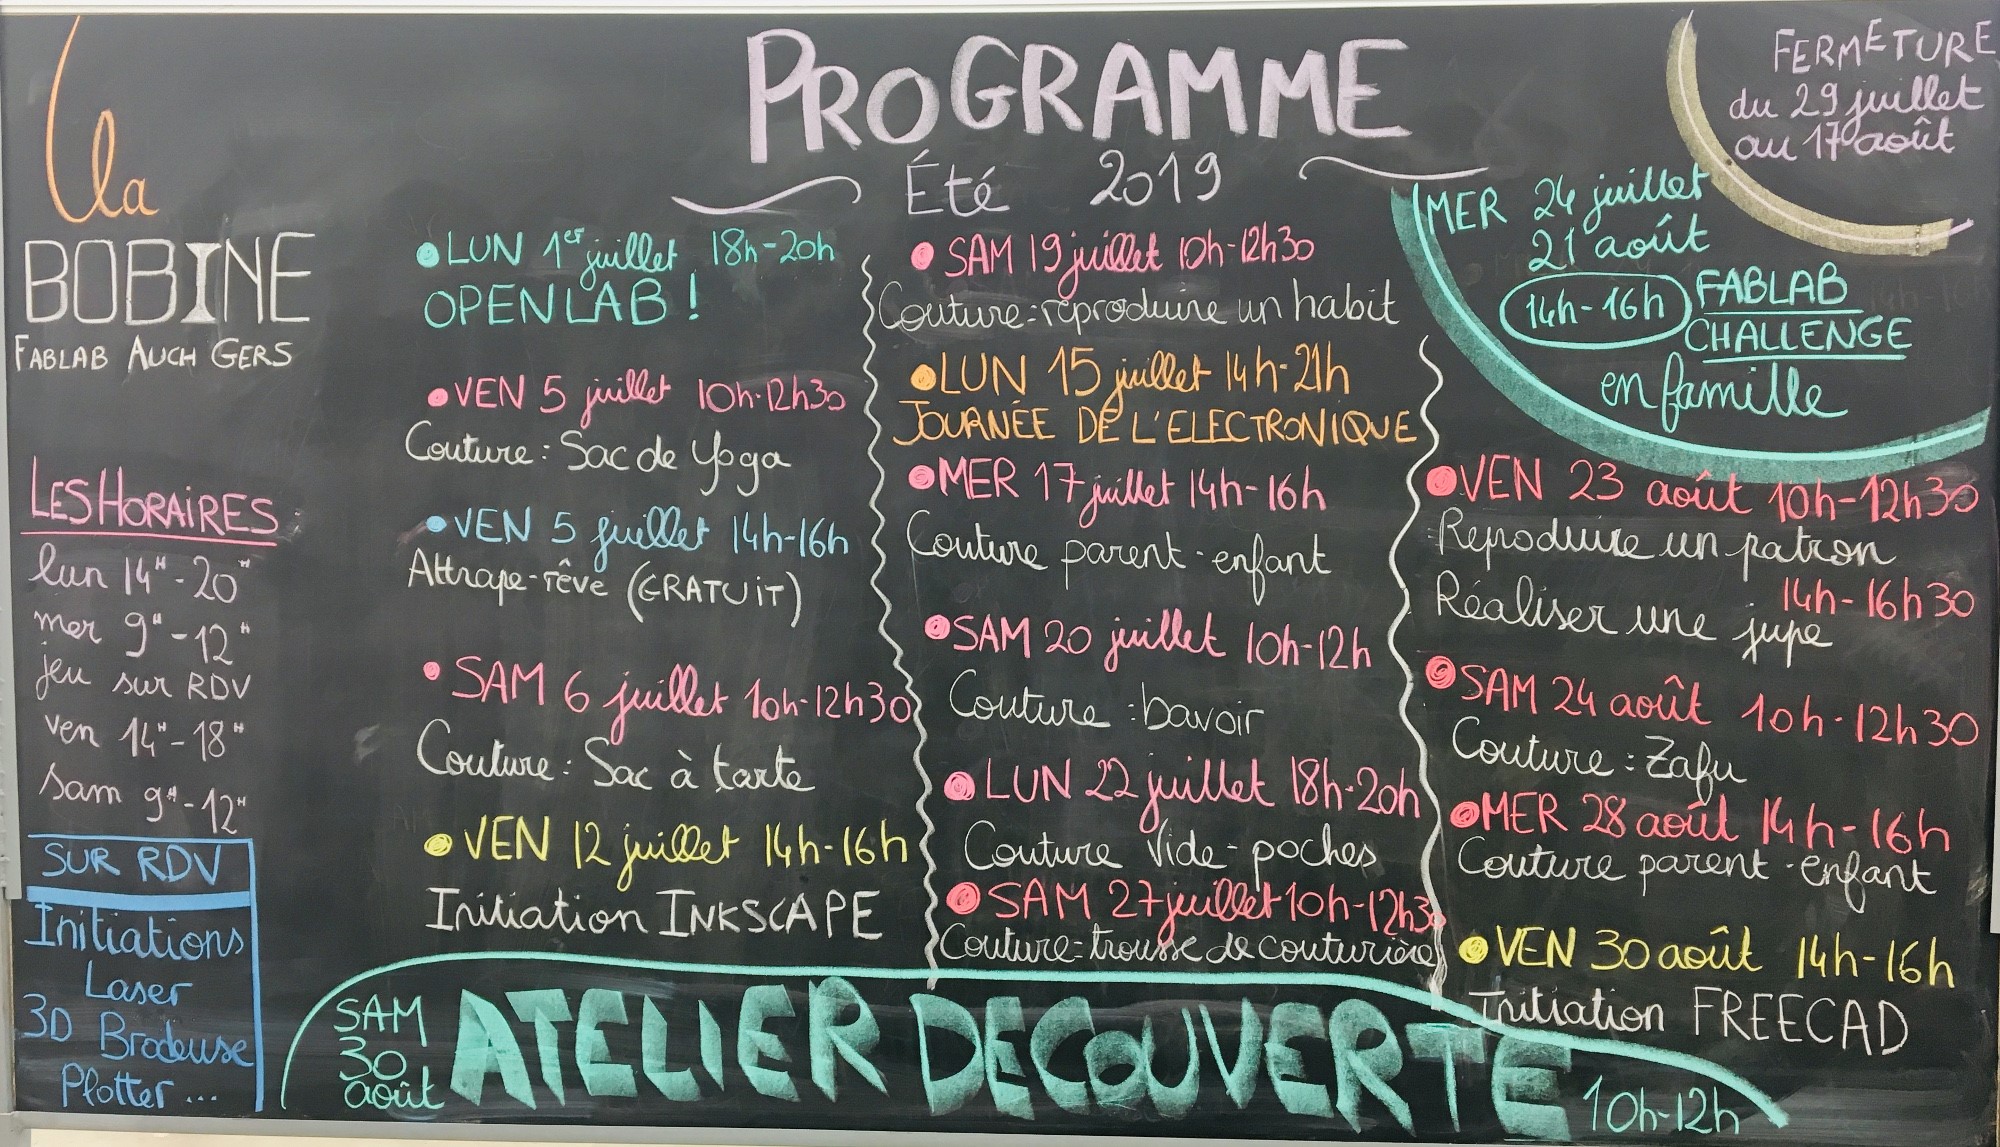 la
BOBINE
FABLAB AUCH GERS
LES HORAIRES
lun 14H-20H
mer 9H-12H
jeu sur RDV
ven 14H-18H
sam 9H-12H
SUR RDV
Initiations
Laser
3D Brodeuse
Plotter...
PROGRAMME
Été 2019
LUN 1er juillet 18h-20h
OPENLAB !
VEN 5 juillet 10h-12h30
Couture : Sac de Yoga
VEN 5 juillet 14h-16h
Attrape-rêve (GRATUIT)
SAM 6 juillet 10h-12h30
Couture : Sac à tarte
VEN 12 juillet 14h-16h
Initiation INKSCAPE
SAM 19 juillet 10h-12h30
Couture : reproduire un habit
LUN 15 juillet 14h-21h
JOURNÉE DE L'ELECTRONIQUE
MER 17 juillet 14h-16h
Couture parent-enfant
SAM 20 juillet 10h-12h
Couture : bavoir
LUN 22 juillet 18h-20h
Couture Vide-poches
SAM 27 juillet 10h-12h30
Couture : trousse de couturière
FERMETURE
du 29 juillet
au 17 août
MER 24 juillet
21 août
14h-16h FABLAB
CHALLENGE
en famille
VEN 23 août 10h-12h30
Reproduire un patron
14h-16h30
Réaliser une jupe
SAM 24 août 10h-12h30
Couture : Zafu
MER 28 août 14h-16h
Couture parent-enfant
VEN 30 août 14h-16h
Initiation FREECAD
SAM
30
août
ATELIER DECOUVERTE
10h-12h